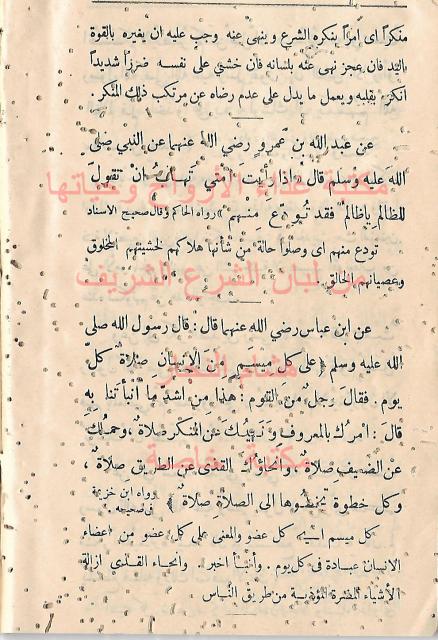 منكراً اى امراً ينكره الشرع وينهى عنه وجب عليه ان يغيره بالقوة
باليد فان عجز نهى عنه بلسانه فان خشى على نفسه ضرراً شديداً
انكر بقلبه ويعمل ما يدل على عدم رضاه عن مرتكب ذلك المنكر .
عن عبد الله بن عمرو رضي الله عنهما عن النبي صلى
الله عليه وسلم قال « اذا رأيت امتي تهاب ان تقول
للظالم ياظالم فقد تُوُدّع منهم » رواه الحاكم وقال صحيح الاسناد
تودع منهم اى وصلوا حالة من شأنها هلاكهم لخشيتهم المخلوق
وعصيانهم الخالق .
عن ابن عباس رضي الله عنهما قال : قال رسول الله صلى
الله عليه وسلم ﴿ على كل ميسم من الانسان صلاة كل
يوم . فقال رجل من القوم : هذا من اشد ما انبأتنا به
قال : امرك بالمعروف ونهيك عن المنكر صلاة ، وحملك
عن الضعيف صلاة ، وانحاؤك القذى عن الطريق صلاة ،
وكل خطوة تخطوها الى الصلاة صلاة ﴾ رواه ابن خزيمة في صحيحه
كل ميسم اى كل عضو والمعنى على كل عضو من اعضاء
الانسان عبادة فى كل يوم . وأنبأ اخبر . وانحاء القذى ازالة
الأشياء المضرة المؤذية من طريق الناس
مكتبة غذاء الأرواح وحياتها
من لبان الشرع الشريف
هشام
مكتبة خاصة